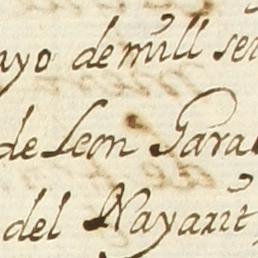 ayo de mill sei
de Leon Gara
del Nayarit